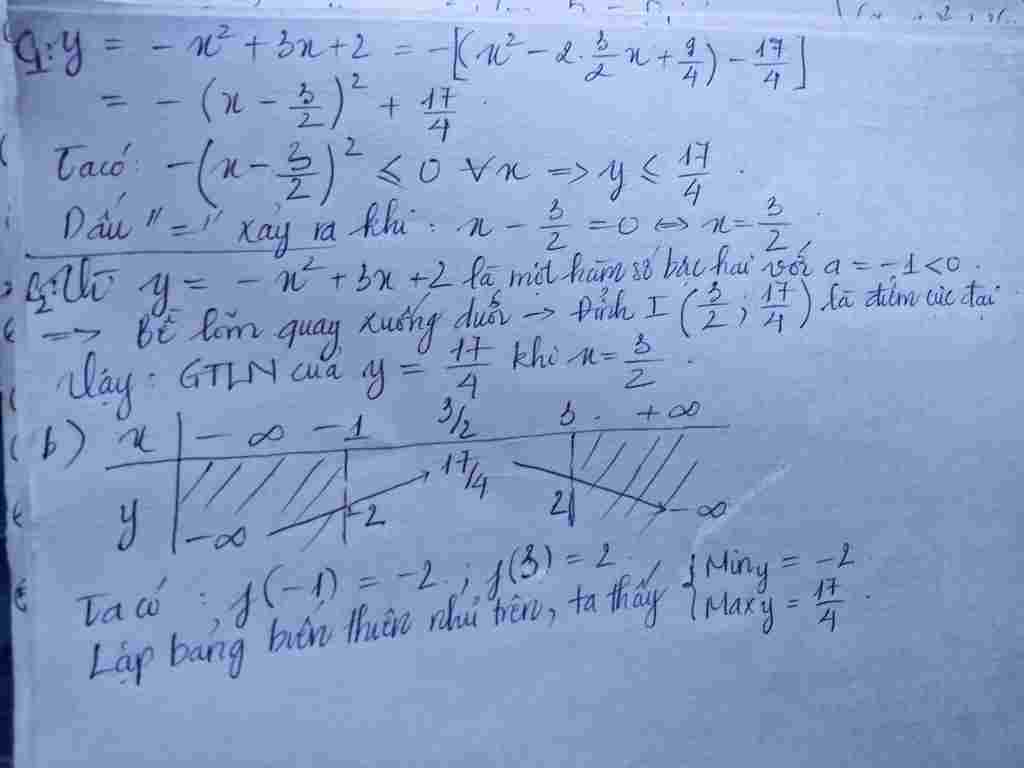 C1: y = - x² + 3x + 2 = -[(x² - 2.3/2x + 9/4) - 17/4]
= - (x - 3/2)² + 17/4.
Ta có: -(x - 3/2)² ≤ 0 ∀x => y ≤ 17/4.
Dấu "=" xảy ra khi: x - 3/2 = 0 <=> x = 3/2.
C2: Vì y = - x² + 3x + 2 là một hàm số bậc hai với a = -1 < 0.
=> Bề lõm quay xuống dưới → Đỉnh I (3/2; 17/4) là điểm cực đại
Vậy: GTLN của y = 17/4 khi x = 3/2.
(b) x - ∞ -1 3/2 3 + ∞
y -∞ -2 17/4 2 -∞
Ta có: f(-1) = -2; f(3) = 2
Lập bảng biến thiên như trên, ta thấy { Min y = -2
Max y = 17/4.